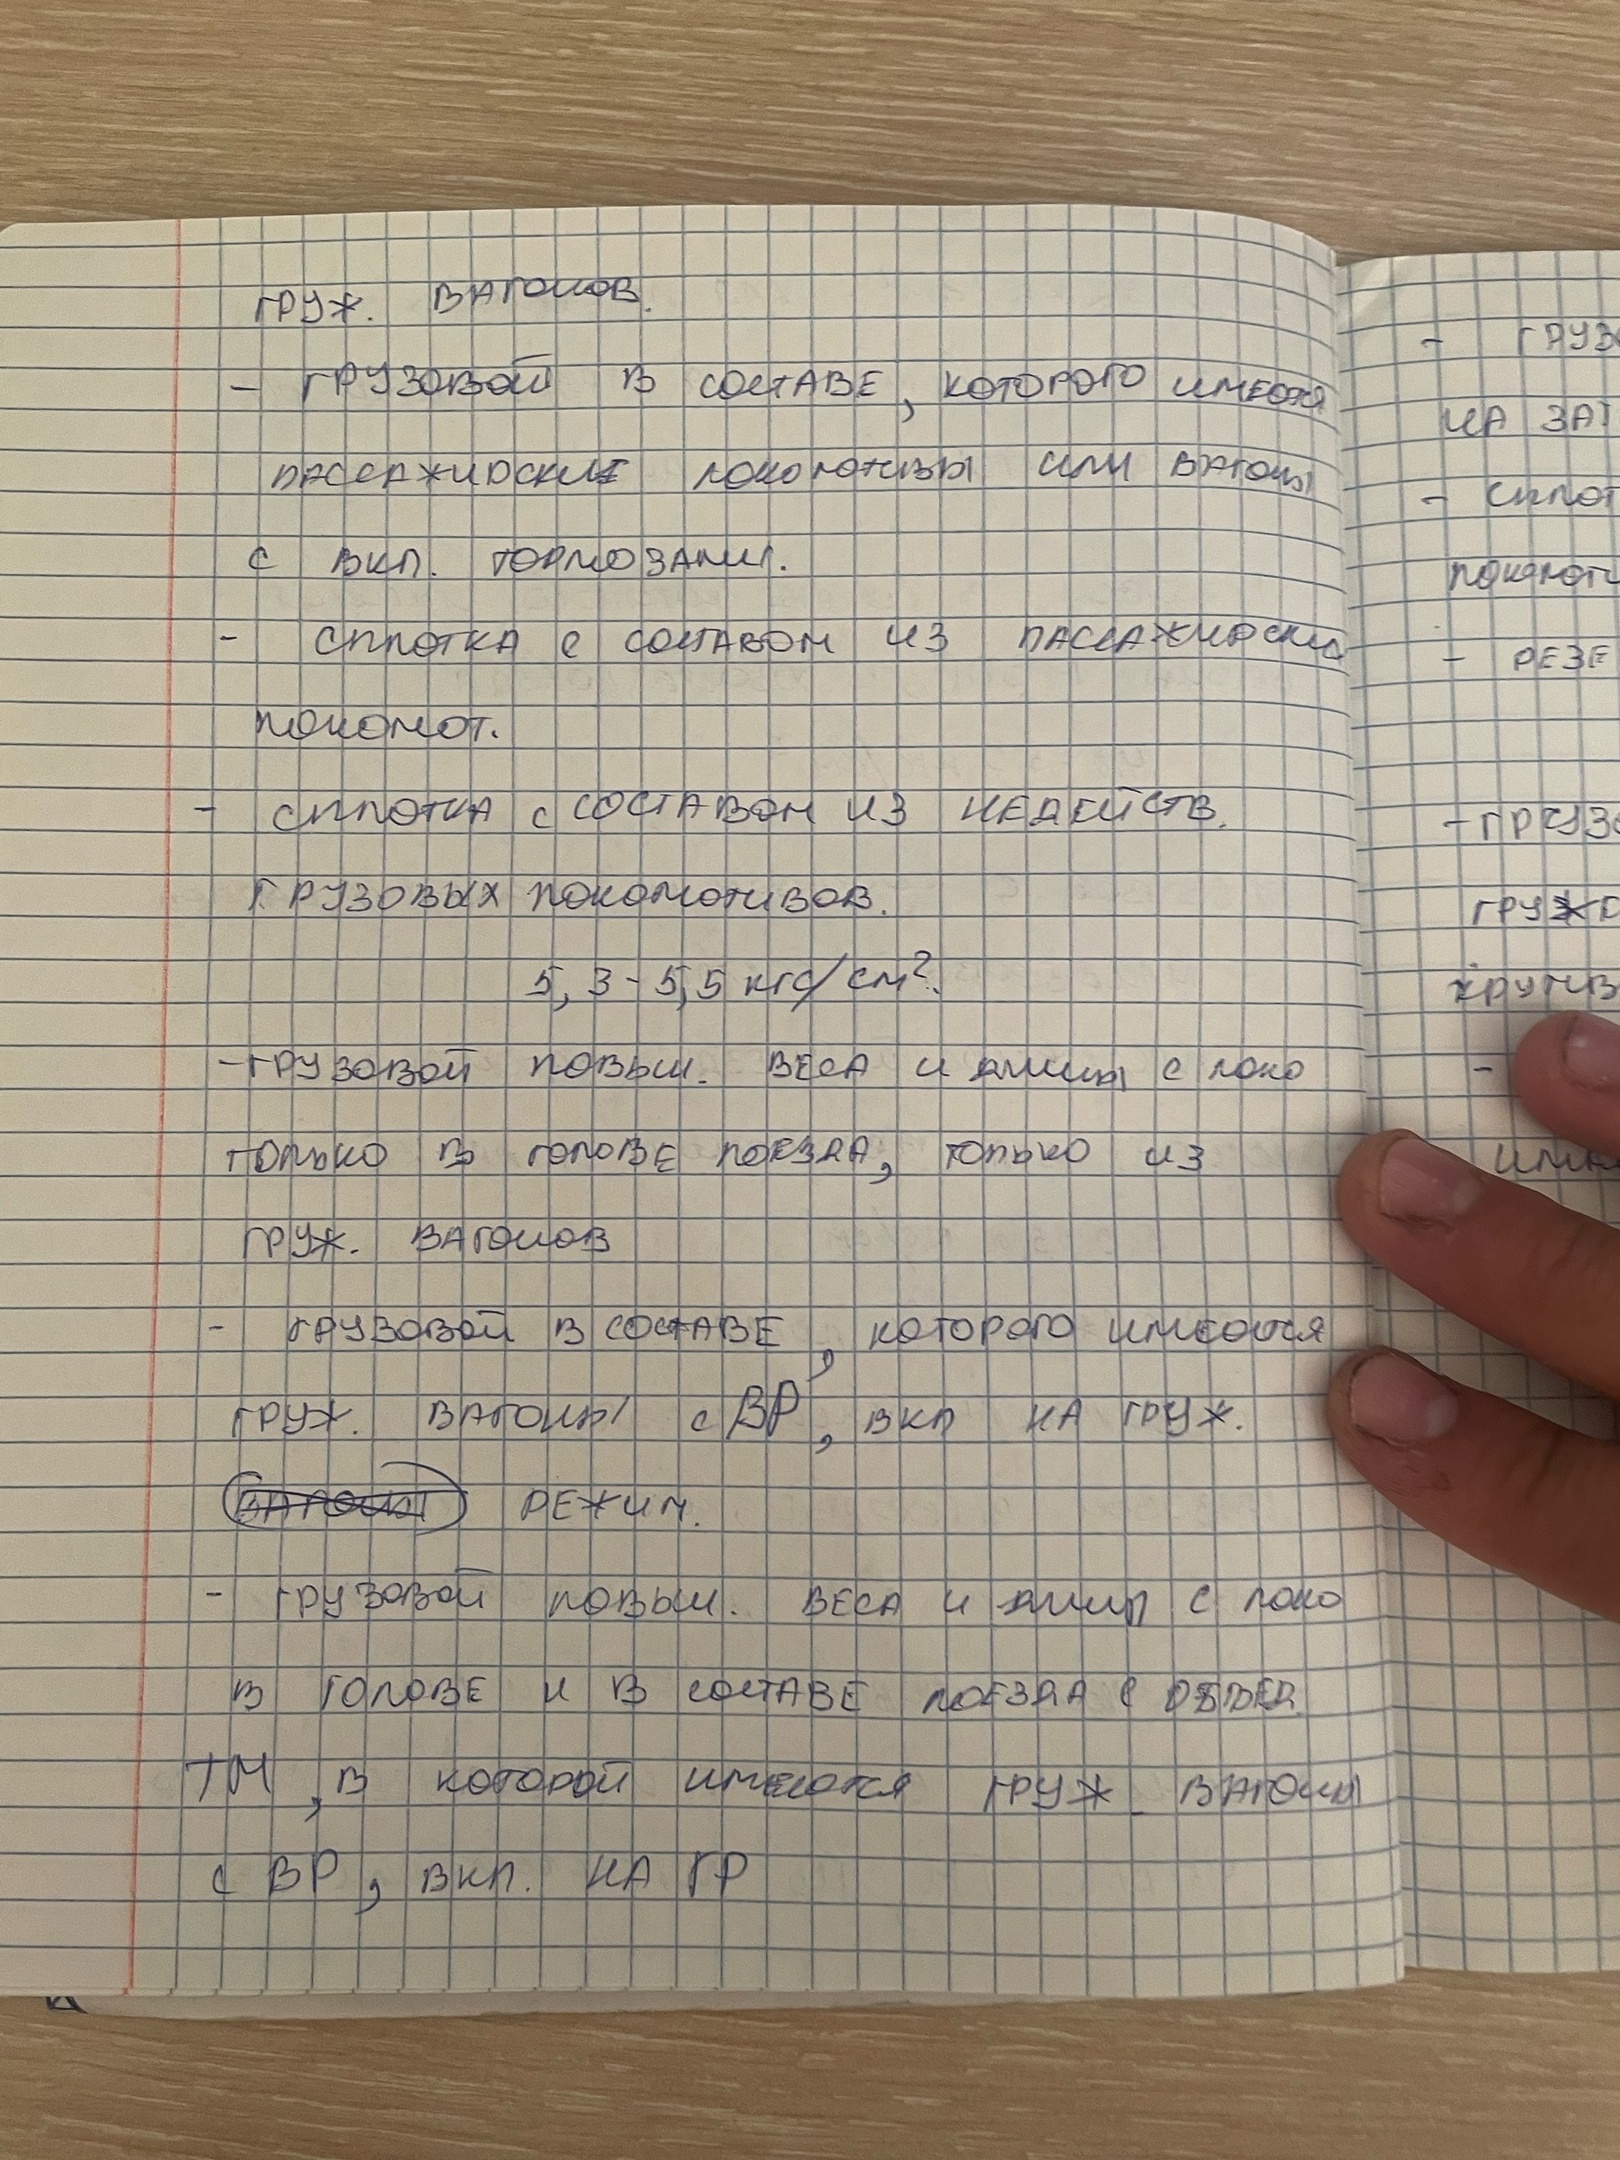 груж. вагонов.
- грузовой в составе, которого имеются
пассажирские локомотивы или вагоны
с вкл. тормозами.
- сплотка с составом из пассажирских
локомот.
- сплотка с составом из недейств.
грузовых локомотивов.
5,3-5,5 кгс/см².
-грузовой повыш. веса и длины с локо
только в голове поезда, только из
груж. вагонов
- грузовой в составе, которого имеются
груж. вагоны с ВР, вкл на груж.
режим.
- грузовой повыш. веса и длины с локо
в голове и в составе поезда с объед.
ТМ, в которой имеются груж. вагоны
с ВР, вкл. на ГР
- грузо
на зат
- сплот
локомоти
- резе
-грузо
груж
-